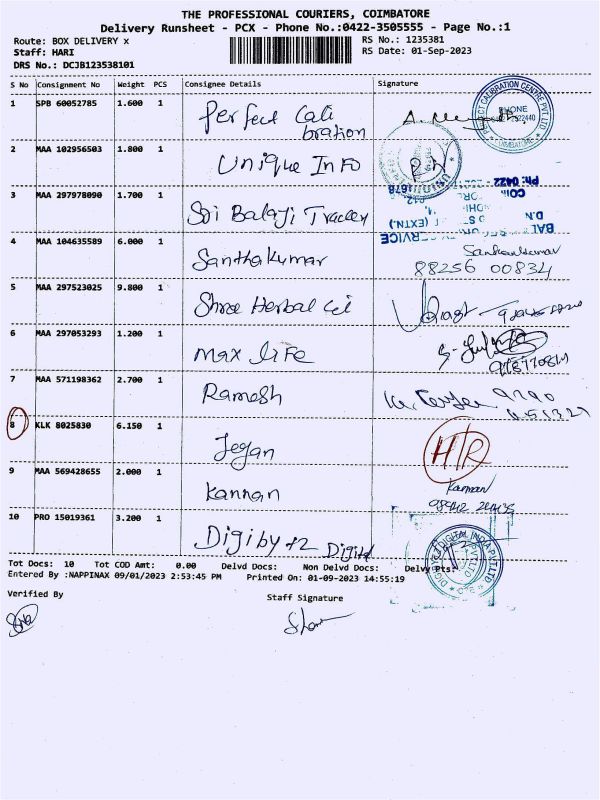 THE PROFESSIONAL COURIERS, COIMBATORE
Delivery Runsheet - PCX - Phone No.:0422-3505555 - Page No.:1
Route: BOX DELIVERY x RS No.: 1235381
Staff: HARI RS Date: 01-Sep-2023
DRS No.: DCJB123538101
S No Consignment No Weight PCS Consignee Details Signature
1 SPB 60052785 1.600 1 Perfect Cali
bration
2 MAA 102956503 1.800 1 Unique Info
3 MAA 297978090 1.700 1 Sri Balaji
4 MAA 104635589 6.000 1 Santhakumar
88256 00834
5 MAA 297523025 9.800 1 Shree Herbal
6 MAA 297053293 1.200 1 Max life
7 MAA 571198362 2.700 1 Ramesh
8 KLK 8025830 6.150 1 Jegan
9 MAA 569428655 2.000 1 Kannan Kannan
10 PRO 15019361 3.200 1 Digiby+2 Digital
Tot Docs: 10 Tot COD Amt: 0.00 Delvd Docs: Non Delvd Docs: Delvy Pts:
Entered By :NAPPINAX 09/01/2023 2:53:45 PM Printed On: 01-09-2023 14:55:19
Verified By Staff Signature